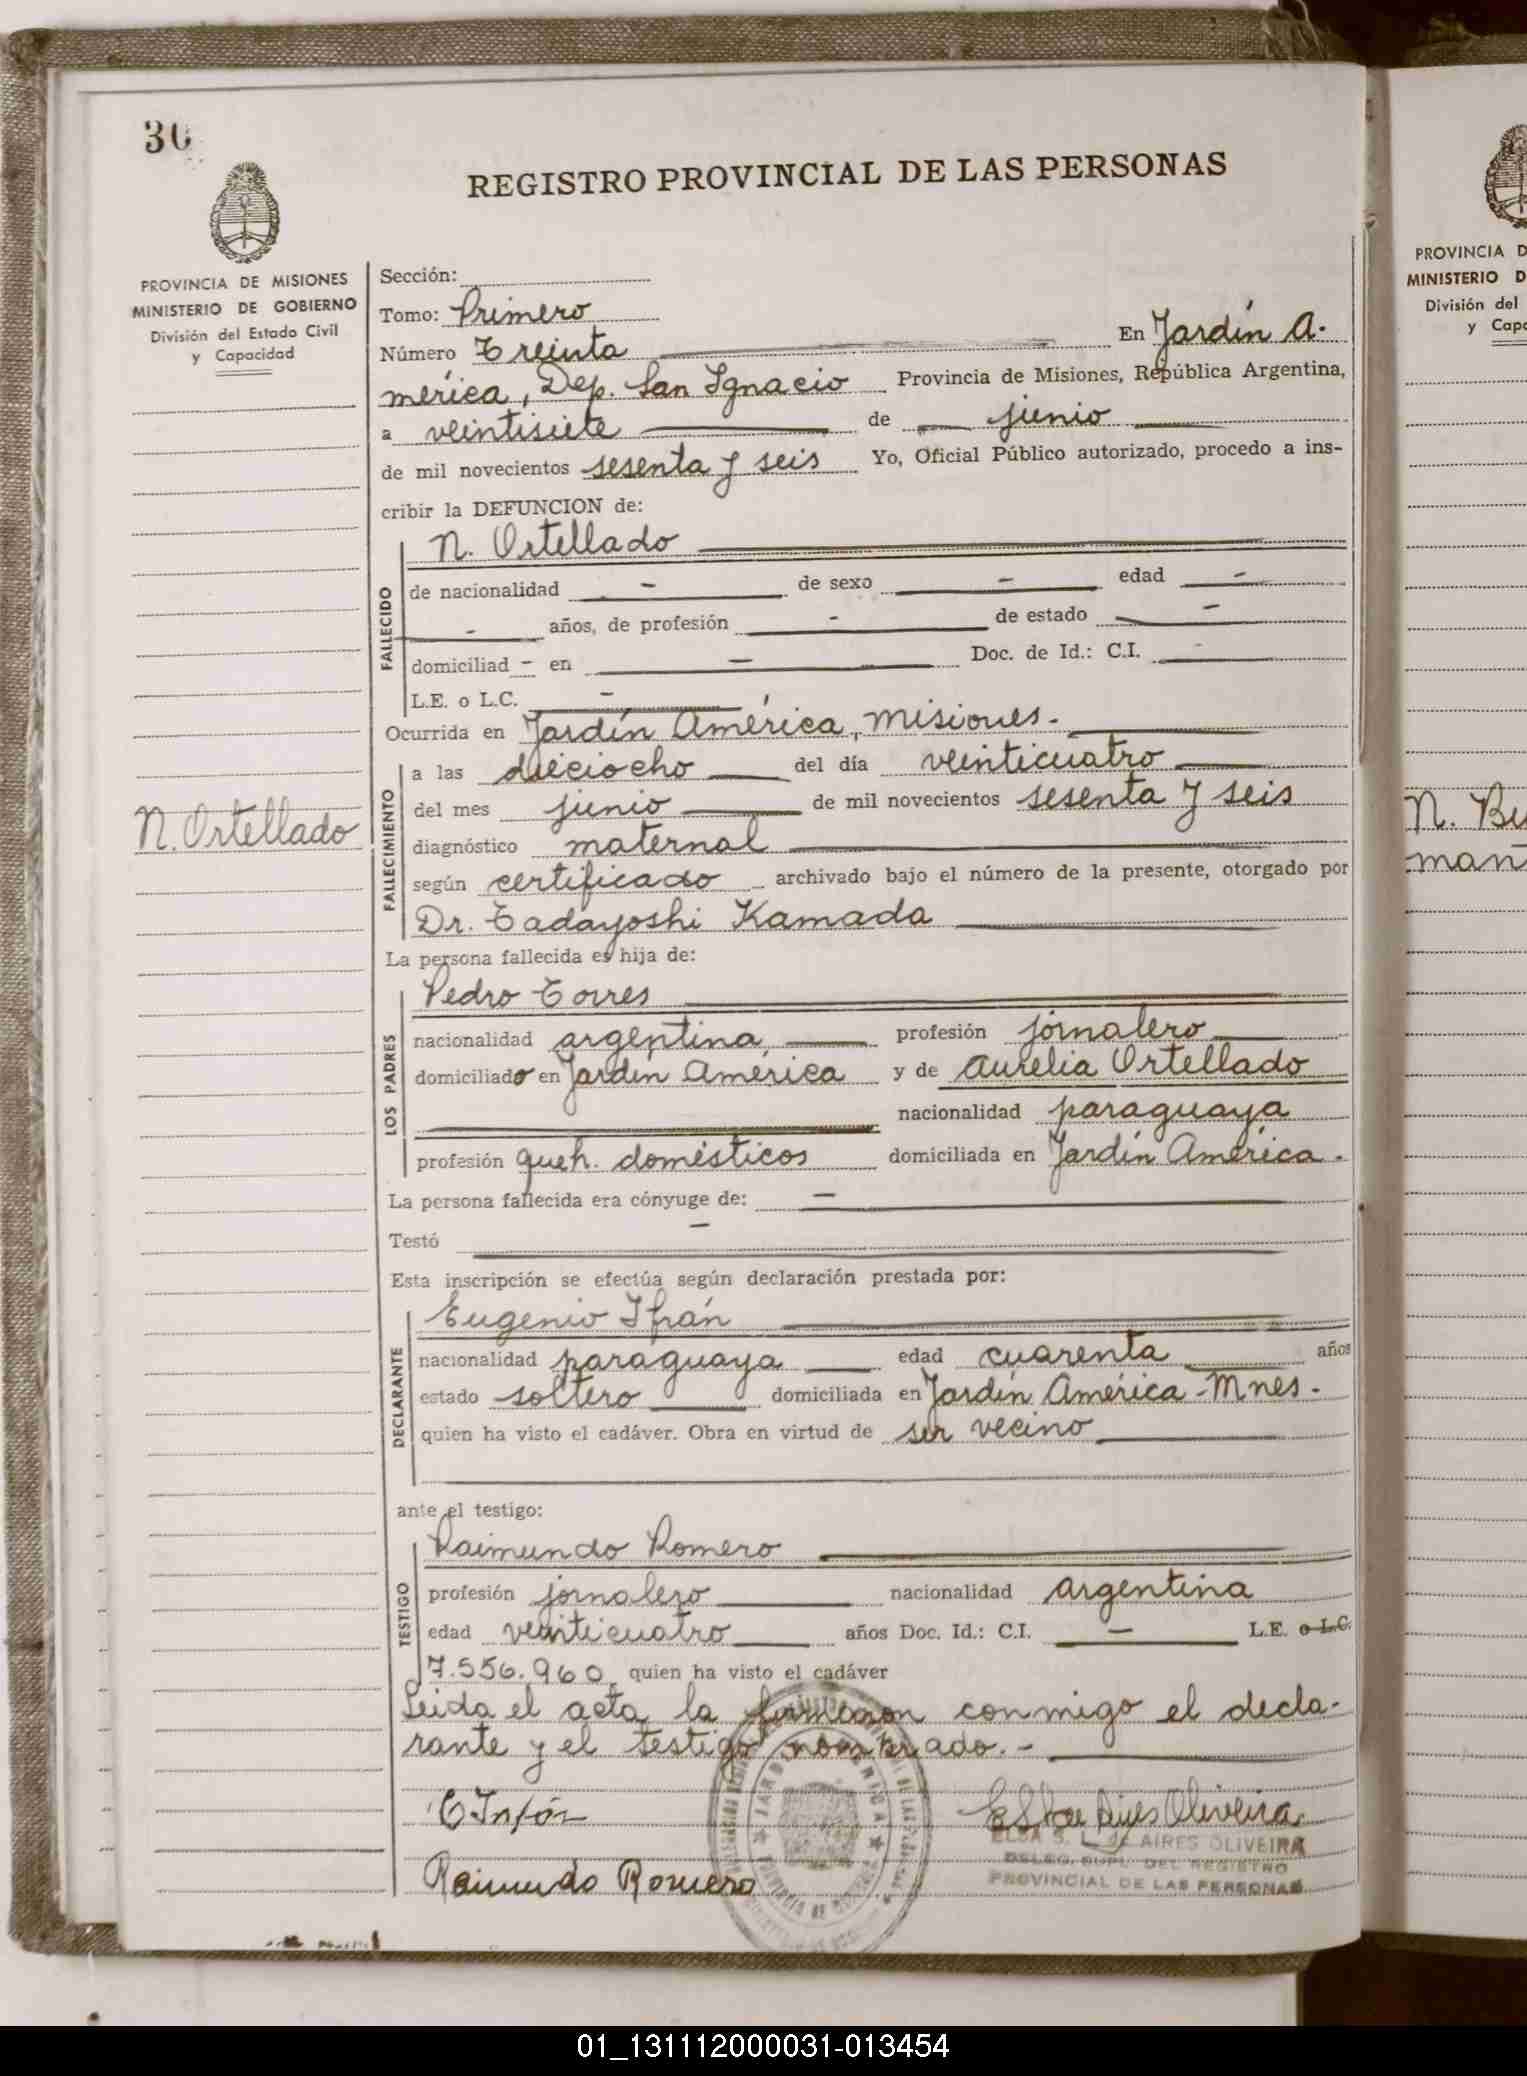 30
REGISTRO PROVINCIAL DE LAS PERSONAS
PROVINCIA DE MISIONES
MINISTERIO DE GOBIERNO
División del Estado Civil
y Capacidad
Sección:
Tomo: Primero
Número Treinta En Jardín A-
mérica, Dep. San Ignacio Provincia de Misiones, República Argentina,
a veintisiete de junio
de mil novecientos sesenta y seis Yo, Oficial Público autorizado, procedo a ins-
cribir la DEFUNCION de:
FALLECIDO
N. Ortellado
de nacionalidad - de sexo - edad -
- años, de profesión - de estado -
domiciliad - en - Doc. de Id.: C.I. -
L.E. o L.C. -
Ocurrida en Jardín América, Misiones.
FALLECIMIENTO
a las dieciocho del día veinticuatro
del mes junio de mil novecientos sesenta y seis
N. Ortellado
diagnóstico maternal
según certificado archivado bajo el número de la presente, otorgado por
Dr. Tadayoshi Kamada
La persona fallecida es hija de:
LOS PADRES
Pedro Torres
nacionalidad argentina, profesión jornalero
domiciliado en Jardín América y de Aurelia Ortellado
nacionalidad paraguaya
profesión queh. domésticos domiciliada en Jardín América.
La persona fallecida era cónyuge de: -
Testó -
Esta inscripción se efectúa según declaración prestada por:
DECLARANTE
Eugenio Ifrán
nacionalidad paraguaya edad cuarenta años
estado soltero domiciliada en Jardín América - Mnes.
quien ha visto el cadáver. Obra en virtud de ser vecino
ante el testigo:
TESTIGO
Raimundo Romero
profesión jornalero nacionalidad argentina
edad veinticuatro años Doc. Id.: C.I. - L.E. o L.C.
7.556.960 quien ha visto el cadáver
Leida el acta la firmaron conmigo el decla-
rante y el testigo nombrado.-
Raimundo Romero
ELSA S. L. de AIRES OLIVEIRA
DELEG. SUPL. DEL REGISTRO
PROVINCIAL DE LAS PERSONAS
JARDIN AMERICA
PROVINCIA D
MINISTERIO D
División del
y Capa
N. Be
man
01_131112000031-013454